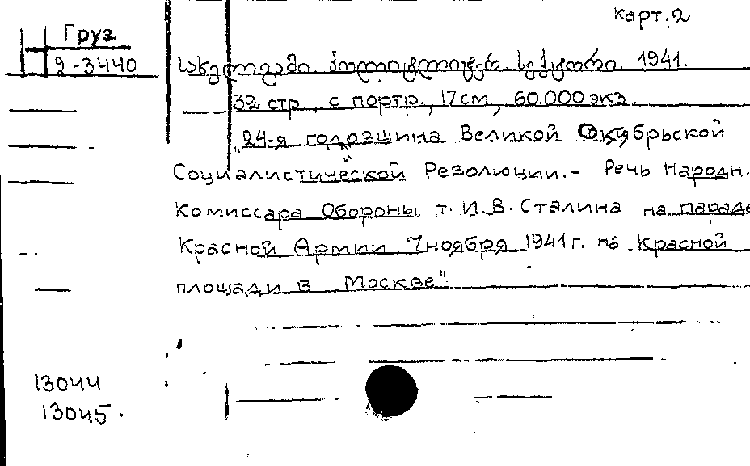 карт.2
Груз
2-3440
სახელგამი. პოლიტლიტერ. სექტორი. 1941.
32 стр., с портр., 17см, 60.000экз.
„24-я годовщина Великой Октябрьской
Социалистической Революции.- Речь Народн.
Комиссара Обороны т. И.В. Сталина на параде
Красной Армии 7ноября 1941г. на Красной
площади в Москве"
13044
13045.